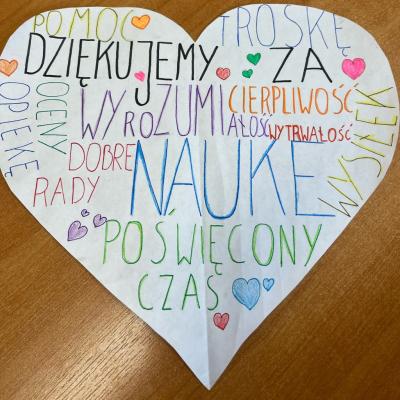 POMOC
TROSKĘ
DZIĘKUJEMY ZA
OPIEKĘ
OCENY
WYROZUMIAŁOŚĆ
CIERPLIWOŚĆ
WYTRWAŁOŚĆ
WYSIŁEK
DOBRE
RADY
NAUKĘ
POŚWIĘCONY
CZAS